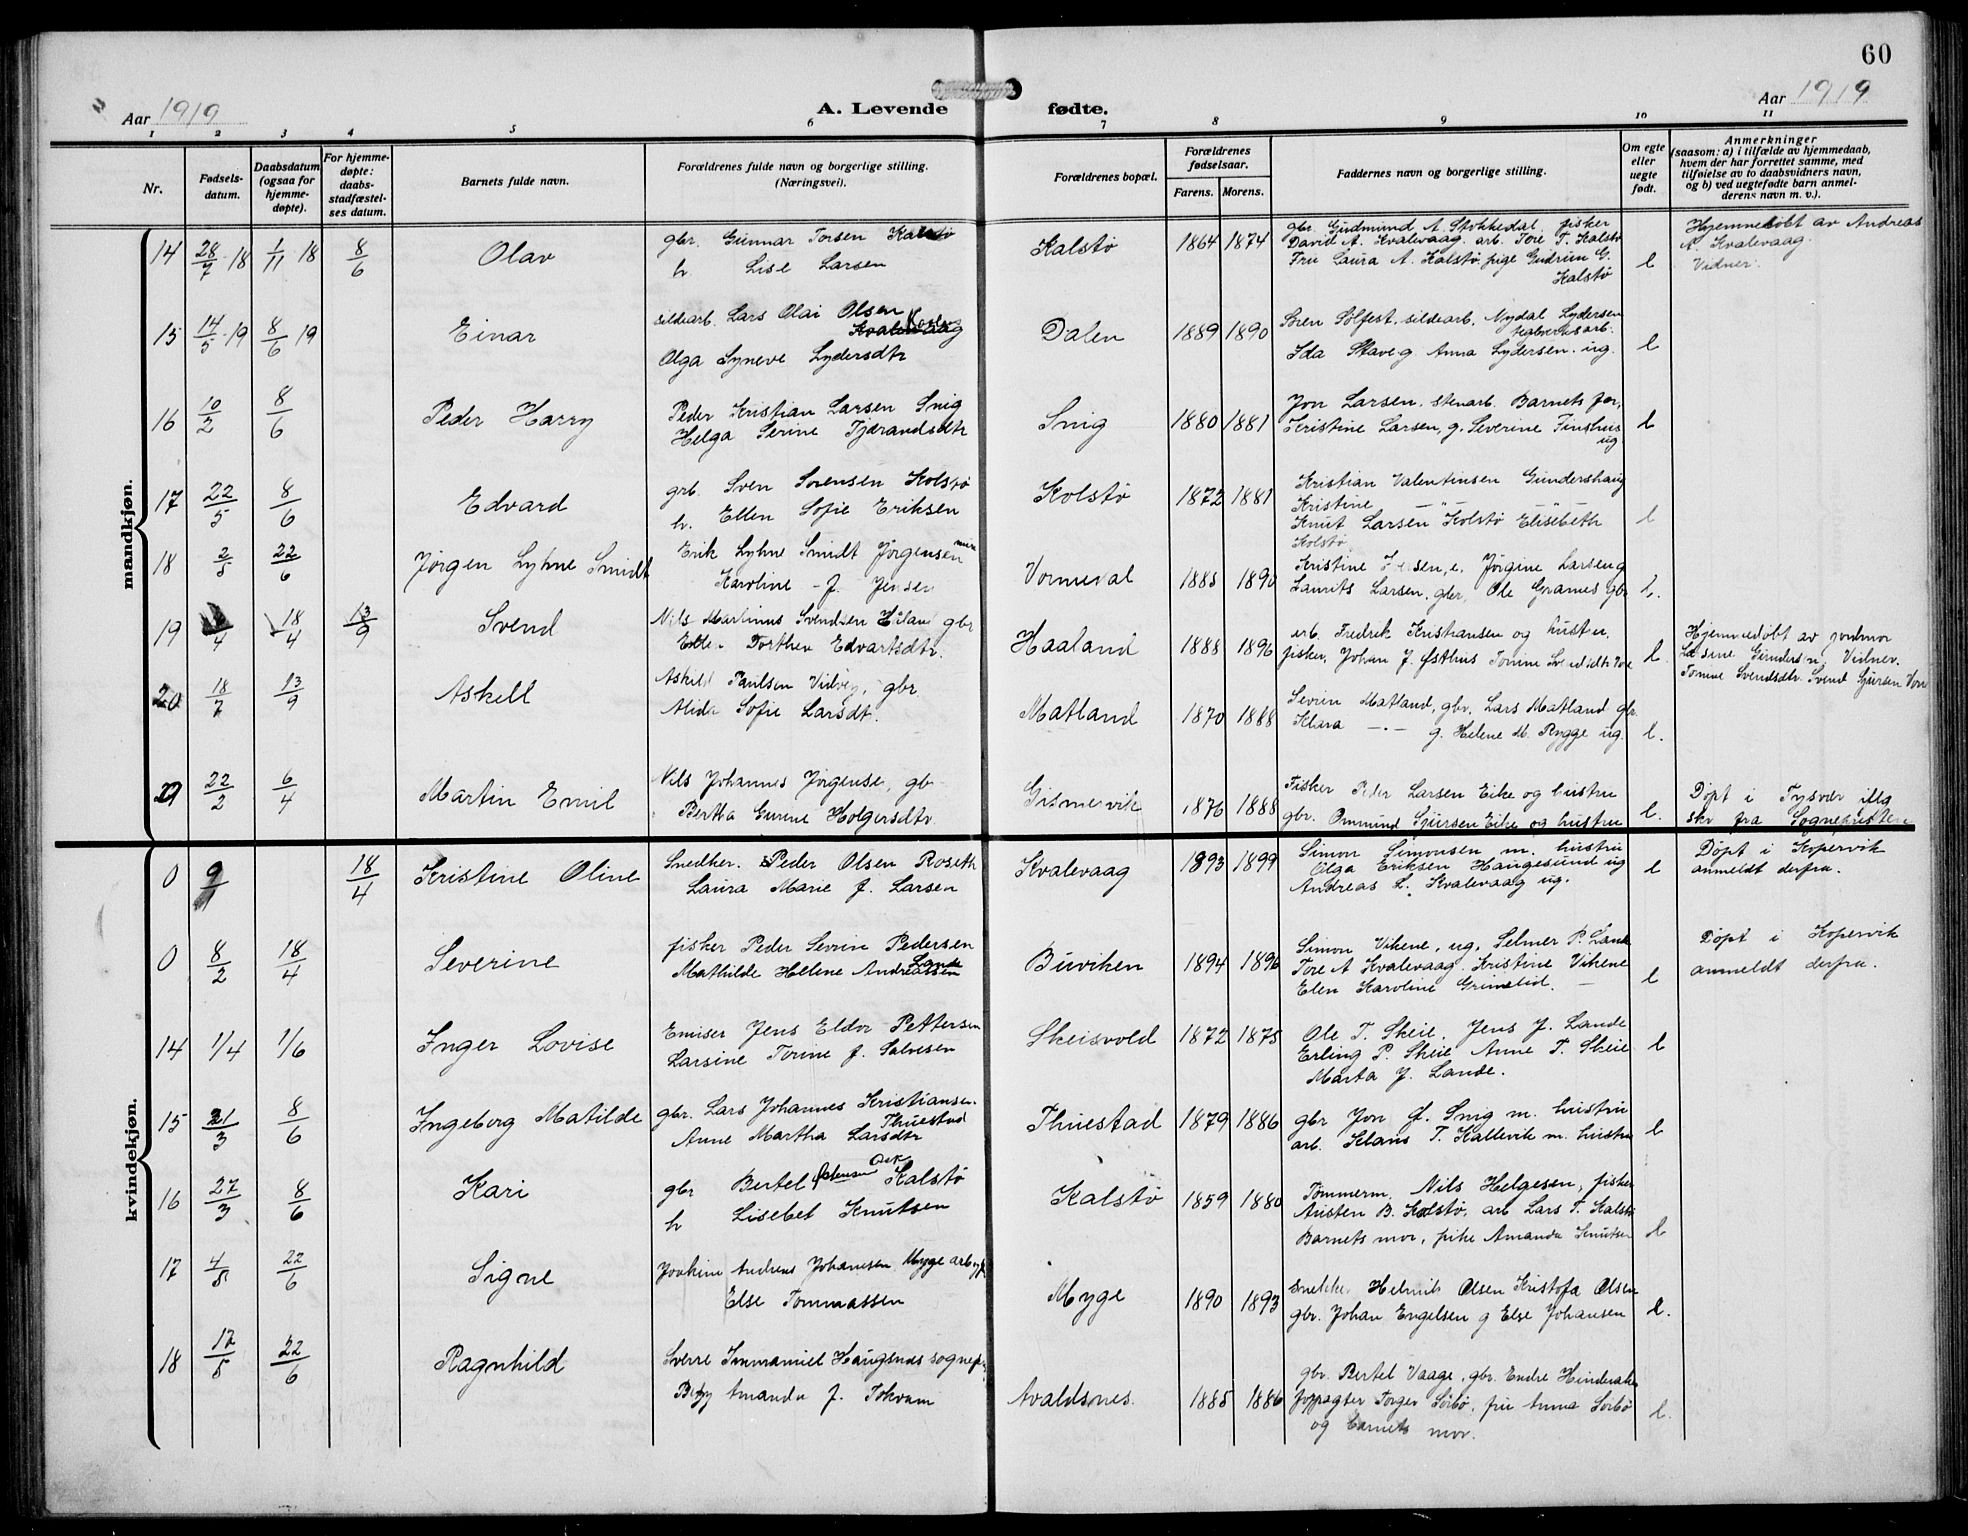 60
Aar 1919 A. Levende fødte. Aar 1919
1 2 3 4 5 6 7 8 9 10 11
Nr.
Fødsels-
datum.
Daabsdatum
(ogsaa for
hjemme-
døpte).
For hjemme-
døpte:
daabs-
stadfæstel-
ses datum.
Barnets fulde navn.
Forældrenes fulde navn og borgerlige stilling.
(Næringsvei).
Forældrenes bopæl.
Forældrenes
fødselsaar.
Farens. Morens.
Faddernes navn og borgerlige stilling.
Om egte
eller
uegte
født.
Anmerkninger
(saasom: a) i tilfælde av hjemmedaab,
hvem der har forrettet samme, med
tilføielse av to daabsvidners navn,
og b) ved uegtefødte barn anmel-
derens navn m. v.).
mandkjøn.
14 28/7 18 1/11 18 8/6 Olav
gbr. Gunnar Torsen Kalstø
h Lise Larsen
Kalstø 1864 1874
gbr. Gudmund A. Stokkedal, fisker
David A. Kvalevaag. arb. Tore T. Kalstø
Fru Laura A. Kalstø, pige Gudrun G.
Kalstø
l
Hjemmedöbt av Andreas
A. Kvalevaag.
Vidner:
15 14/5 19 8/6 19 Einar
sildearb. Lars Olai Olsen
Kvalevaag
Olga Syneve Lydersdtr
Dalen 1889 1890
Sören Sölfest. sildearb. Nydal Lydersen
Ida Stave g. Anna Lydersen. ug.
l
16 10/2 8/6 Peder Harry
Peder Kristian Larsen Snig
Helga Serine Tjærandsdtr
Snig 1880 1881
Jon Larsen, stenarb. Barnets far,
Kristine Larsen, g. Severine Tinshus
ug
l
17 22/5 8/6 Edvard
grb. Sven Sørensen Kolstø
h. Ellen Sofie Eriksen
Kolstø 1872 1881
Kristian Valentinsen Gundershaug
Kristine — " —
Knut Larsen Kolstø Elisebeth
Kolstø
l
18 2/5 22/6 Jørgen Lyhne Smidt
Erik Lyhne Smidt Jørgensen
Karoline f. Jensen
Vormeval 1885 1890
Kristine Iversen, e. Jørgine Larsen g
Laurits Larsen, gbr, Ole Grannes gbr
l.
19 /4 18/4 13/9 Svend
Nils Martinus Svendsen Håland gbr
Ellen Dorthea Edvartsdtr.
Haaland 1888 1896
arb. Fredrik Kristiansen og hustru,
fisker, Johan J. Østhus Tomine Svendsdtr Vore
l.
Hjemmedøbt av jordmor
Gundersen, Vidner.
Tomine Svendsdtr. Svend Sjursen Vore
20 18/7 13/9 Askell
Askild Paulsen Vidvey, gbr
Alida Sofie Larsdt.
Matland 1870 1888
Sevrin Matland, gbr. Lars Matland gbr.
Klara — " — g. Helene M. Rygge ug.
l.
22/2 6/4 Martin Emil
Nils Johannes Jørgense, gbr
Bertha Gurine Holgersdtr.
Gismervik 1876 1888
Fisker Peder Larsen Eike og hustru
gbr. Ommund Sjursen Eike og hustru
l.
Døpt i Tysvær iflg
skr fra Sognepresten
kvindekjøn.
0 9/1 18/4 Kristine Oline
Snedker. Peder Olsen Roseth
Laura Marie f. Larsen
Kvalevaag 1893 1899
Simon Simonsen m. hustru
Olga Eriksen Haugesund ug
Andreas L. Kvalevaag ug.
l
Døpt i Kopervik
anmeldt derfra.
0 8/2 18/4 Severine
fisker Peder Sevrin Pedersen
Lande
Mathilde Helene Andreassen
Buviken 1894 1896
Simon Vikene, ug, Selmer P. Lande
Tore A Kvalevaag. Kristine Vikene
Elen Karoline Grimelid. —
l
Døpt i Kopervik
anmeldt derfra.
14 1/4 1/6 Inger Lovise
Emiser Jens Eldor Pettersen
Larsine Torine f. Salvesen
Skeisvold 1872 1875
Ole T. Skeie. Jens J. Lande
Erling P. Skeie Anne T. Skeie
Marta J. Lande.
l
15 21/3 8/6 Ingeborg Matilde
gbr. Lars Johannes Kristiansen.
Thuestad
Anne Martha Larsdtr
Thuestad 1879 1886
gbr Jon J. Snig m. hustru
arb. Klaus T. Kallevik m. hustru
l
16 27/3 8/6 Kari
gbr Bertel Kalstø
h Lisebet Knutsen
Kalstø 1859 1880
Tømmerm. Nils Helgesen, fisker
Aristen B. Kalstø, arb Lars T. Kalstø
Barnets mor, pike Amanda Knutsen
l
17 4/5 22/6 Signe
Joakim Andreas Johansen Myge arb
Else Tommassen
Myge 1890 1893
snekker Helmik Olsen Kristofa Olsen
gbr. Johan Engelsen g Else Johansen
l.
18 12/5 22/6 Ragnhild
Sverre Immanuel Haugsnes sognepr
Betzy Amanda f. Tokvam
Avaldsnes. 1885 1886
gbr. Bertel Vaage, gbr. Endre Hinderaker
forpagter Torger Sörbö, fru Anna Sörbö
og barnets mor.
l.